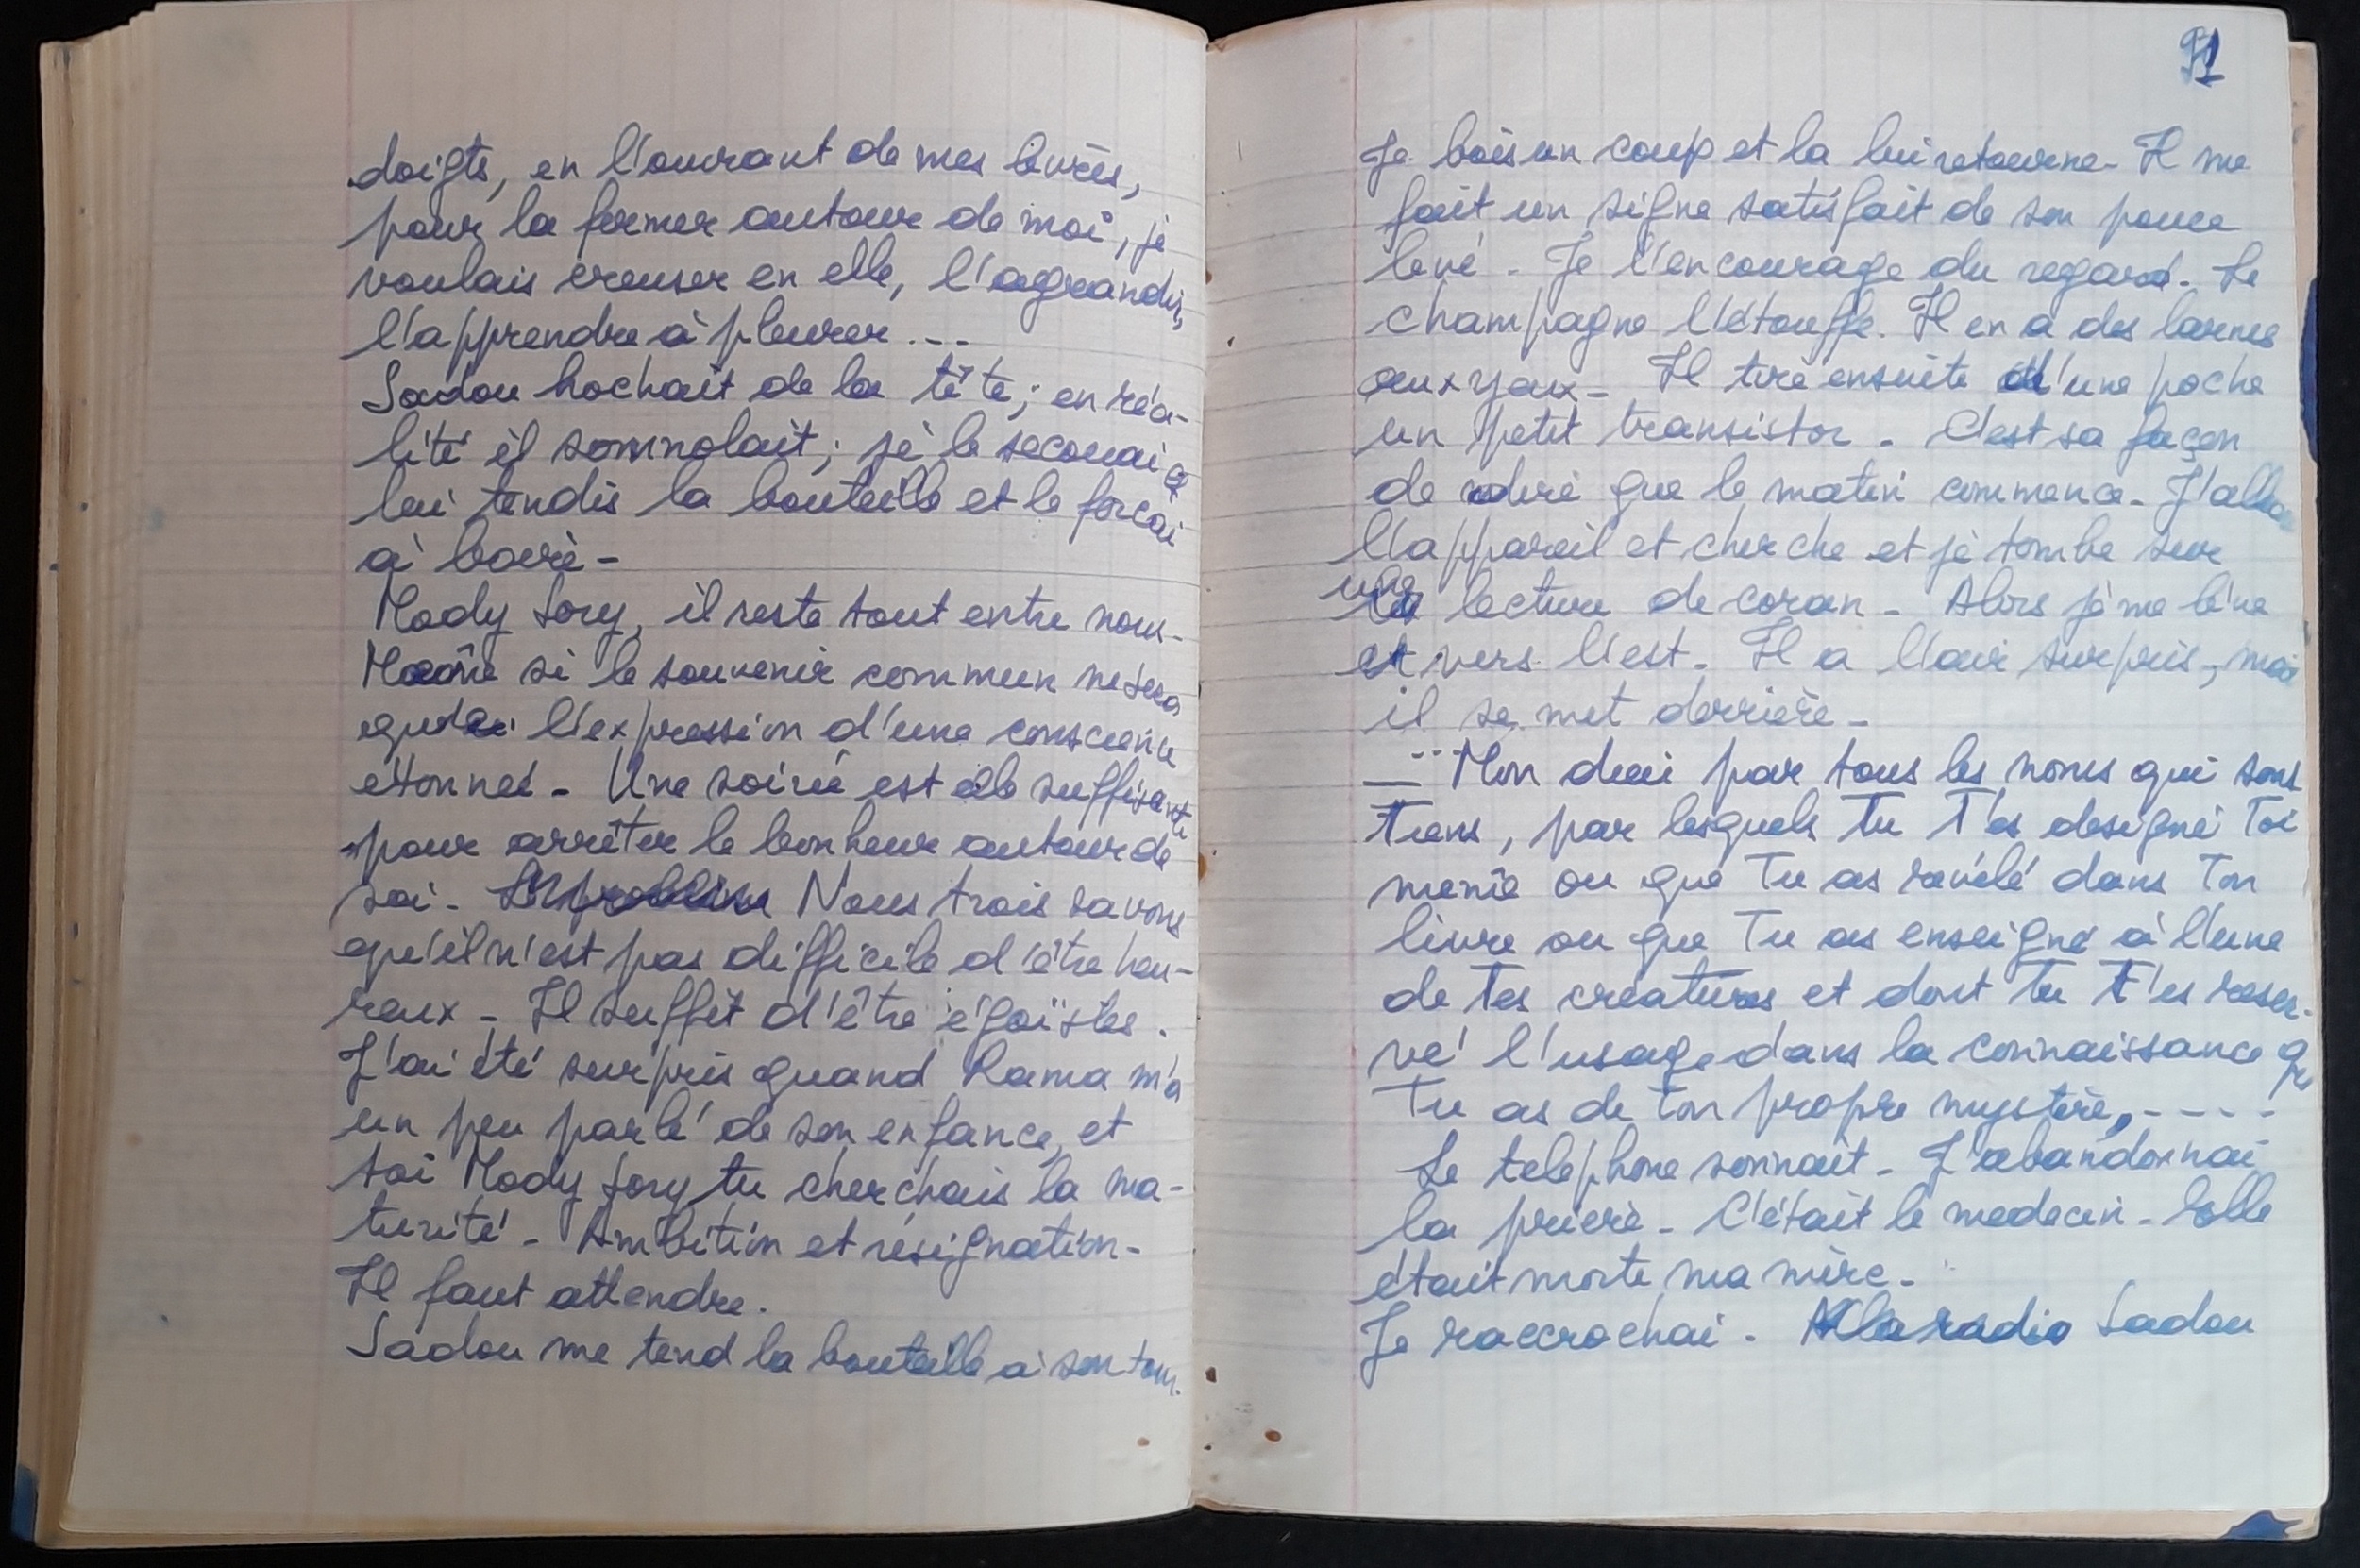 doigts, en l'ouvrant de mes lèvres,
pour la fermer autour de moi, je
voulais creuser en elle, l'agrandir,
l'apprendre à pleurer...
Sadou hochait de la tête; en réa-
lité il somnolait; je le secouai
lui tendis la bouteille et le forçai
à boire -
Mody Sory, il reste tout entre nous -
Même si le souvenir commun ne sera
que l'expression d'une conscience
étonnée - Une soirée est elle suffisante
pour arrêter le bonheur autour de
soi - Nous trois savons
qu'il n'est pas difficile d'être heu-
reux - Il suffit d'être égoïstes.
J'ai été surpris quand Rama m'a
un peu parlé de son enfance, et
toi Mody Sory tu cherchais la ma-
turité - Ambition et résignation -
Il faut attendre.
Sadou me tend la bouteille à son tour.
91
Je bois un coup et la lui retourne - Il me
fait un signe satisfait de son pouce
levé - Je l'encourage du regard - Le
champagne l'étouffe. Il en a des larmes
aux yeux - Il tire ensuite d'une poche
un petit transistor - C'est sa façon
de dire que le matin commence - J'allume
l'appareil et cherche et je tombe sur
une lecture de coran - Alors je me lève
et vers l'est. Il a l'air surpris, mais
il se met derrière -
— Mon dieu par tous les noms qui sont
Tiens, par lesquels Tu T'es designé Toi
même ou que Tu as révélé dans Ton
livre ou que Tu as enseigné à l'une
de Tes créatures et dont Tu T'es réser-
vé l'usage dans la connaissance que
Tu as de Ton propre mystère, - - - -
Le telephone sonnait - J'abandonnai
la prière - C'était le medecin - Elle
était morte, ma mère -
Je raccrochai. A la radio Sadou